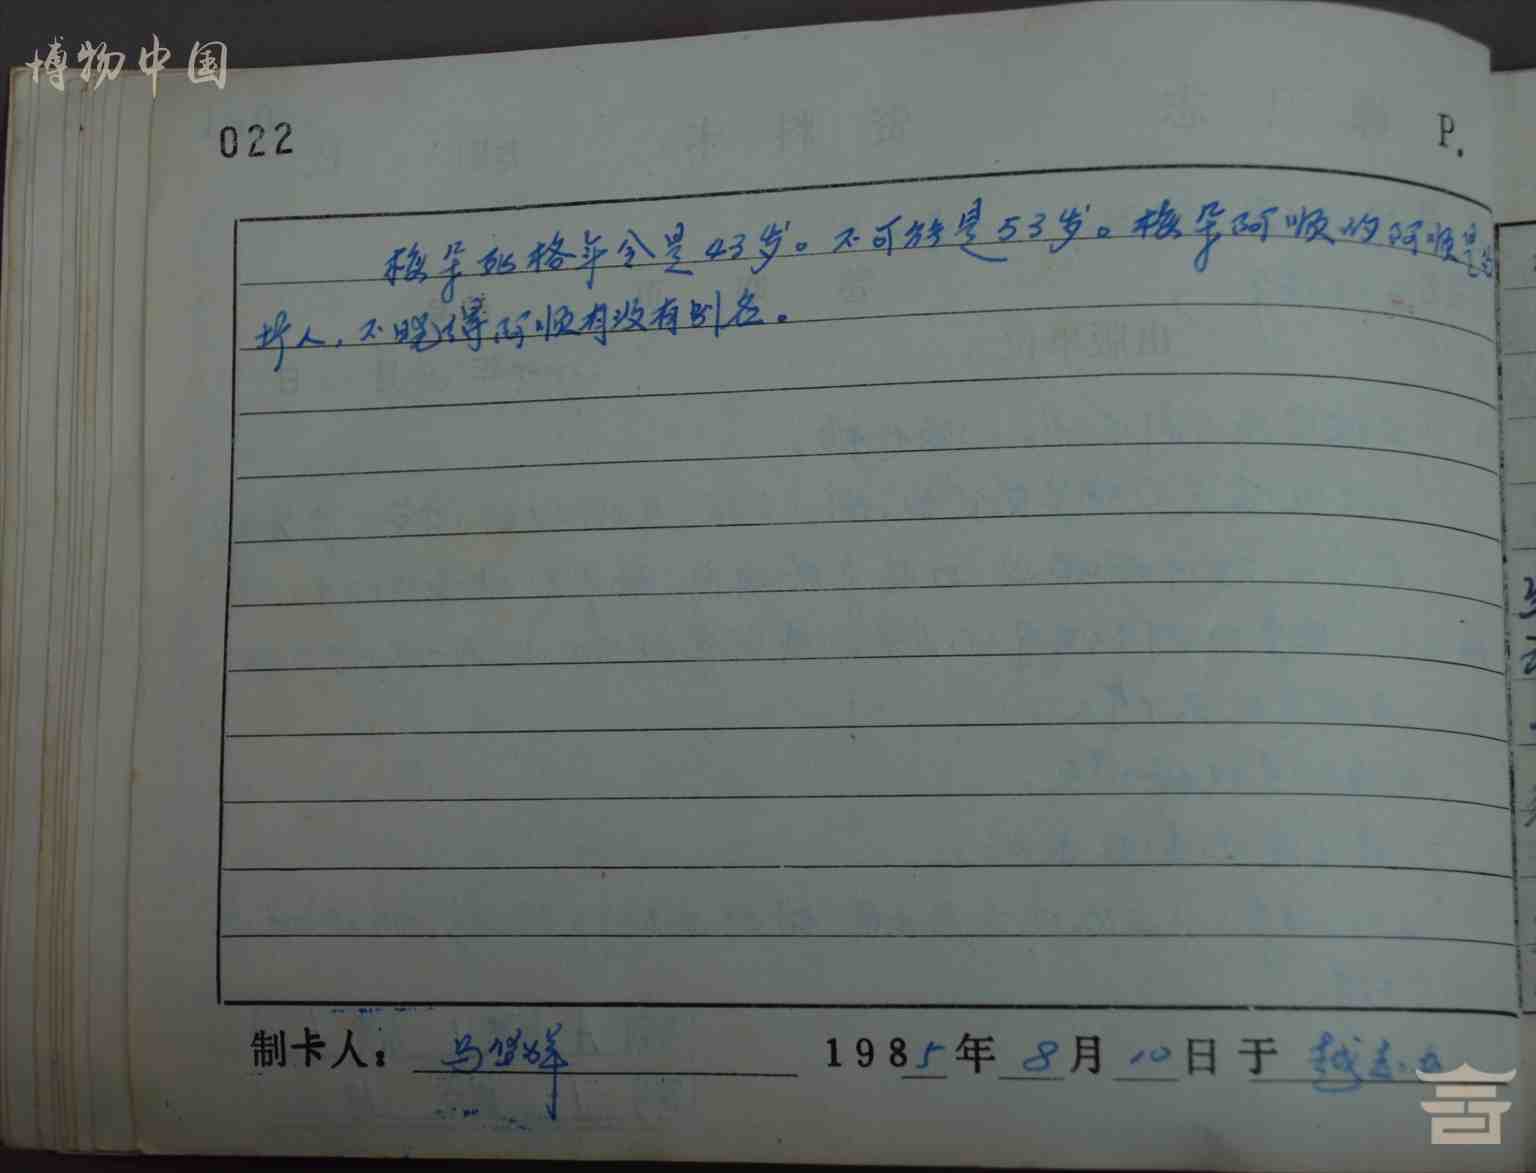 博物中国
022
P.
梭朵珌格年令是43岁。不可能是53岁。梭朵阿顺的阿顺是
人,不晓得阿顺有没有别名。
制卡人:马
1985年8月10日于